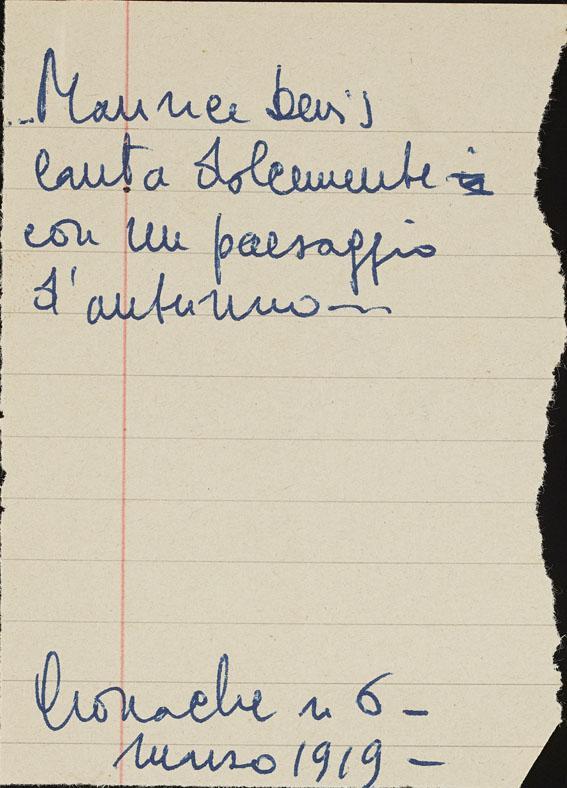 Maurice Denis
canta dolcemente
con un paesaggio
d'autunno —
Cronache n 6 -
marzo 1919 -